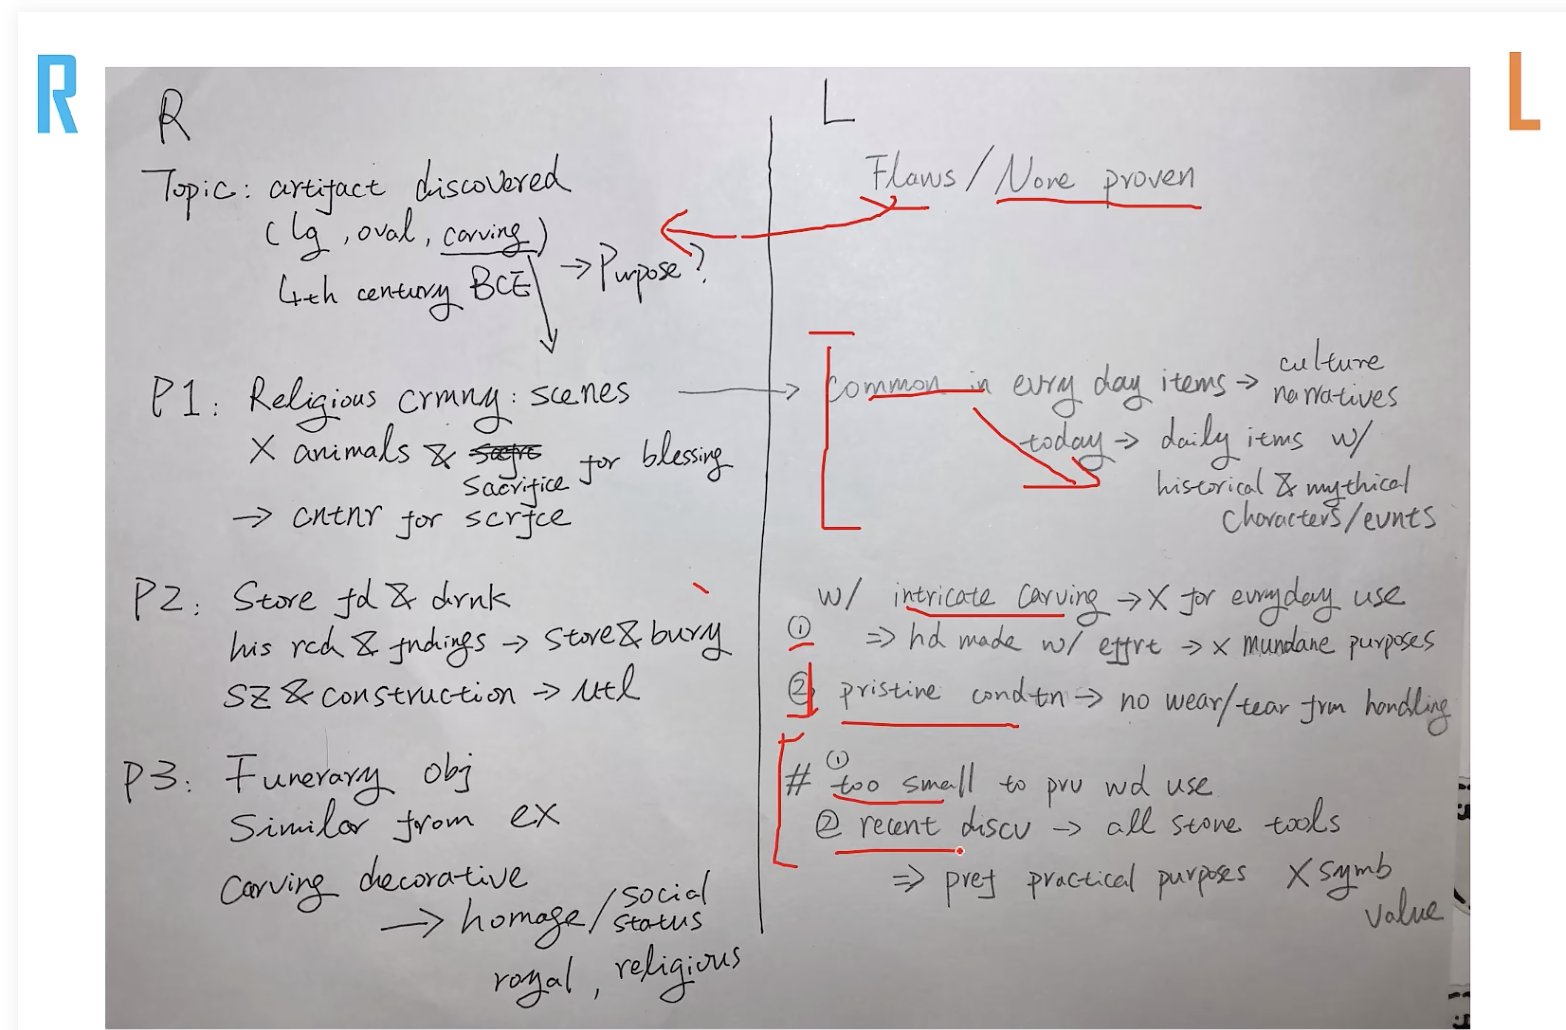 R
L
R
Topic: artifact discovered
(lg, oval, carving)
4th century BCE → Purpose?
P1: Religious crmny: scenes
X animals & sacrifice for blessing
→ cntnr for scrfce
P2: Store fd & drnk
his rcd & fndings → store & bury
sz & construction → utl
P3: Funerary obj
Similar from ex
Carving decorative
→ homage/social status
royal, religious
L
Flaws/None proven
common in evry day items → culture narratives
today → daily itms w/
historical & mythical
characters/evnts
w/ intricate carving → X for evryday use
① ⇒ hd made w/ effrt → x mundane purposes
② pristine condtn → no wear/tear frm handling
# ① too small to prv wd use
② recent discv → all stone tools
⇒ pref practical purposes X symb
value